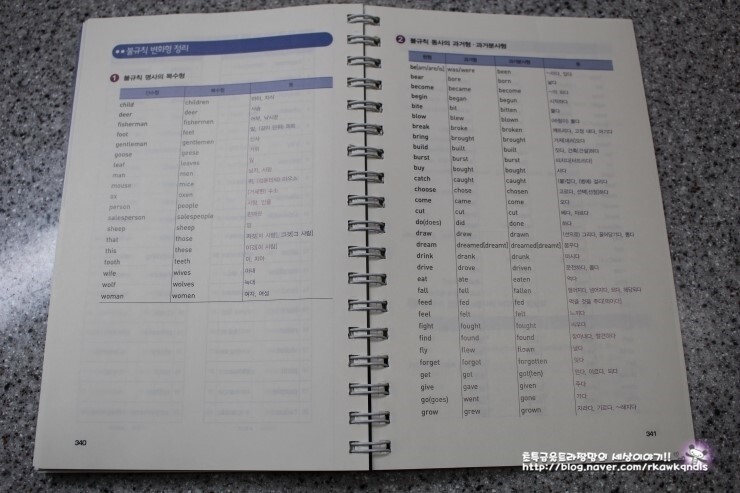 불규칙 변화형 정리
1 불규칙 명사의 복수형
단수형 복수형 뜻
child children
deer deer 사슴
fisherman fishermen 어부, 낚시꾼
foot feet
gentleman gentlemen 신사
goose geese 거위
leaf leaves 잎
man men 남자, 사람
mouse mice
ox oxen
person people 사람, 인물
salesperson salespeople 판매원
sheep sheep 양
that those
this these
tooth teeth 이, 치아
wife wives 아내
wolf wolves 늑대
woman women 여자, 여성
340
2 불규칙 동사의 과거형 · 과거분사형
원형 과거형 과거분사형 뜻
be(am/are/is) was/were been ~이다, 있다
bear bore born 낳다
become became become ~이 되다
begin began begun 시작하다
bite bit bitten 물다
blow blew blown
break broke broken
bring brought brought
build built built
burst burst burst
buy bought bought 사다
catch caught caught
choose chose chosen
come came come 오다
cut cut cut 베다, 자르다
do(does) did done 하다
draw drew drawn
dream dreamed(dreamt) dreamed(dreamt) 꿈꾸다
drink drank drunk 마시다
drive drove driven 운전하다, 몰다
eat ate eaten 먹다
fall fell fallen
feed fed fed
feel felt felt 느끼다
fight fought fought 싸우다
find found found 찾아내다, 발견하다
fly flew flown 날다
forget forgot forgotten 잊다
get got got(ten)
give gave given 주다
go(goes) went gone 가다
grow grew grown
341
http://blog.naver.com/rkawkqndls